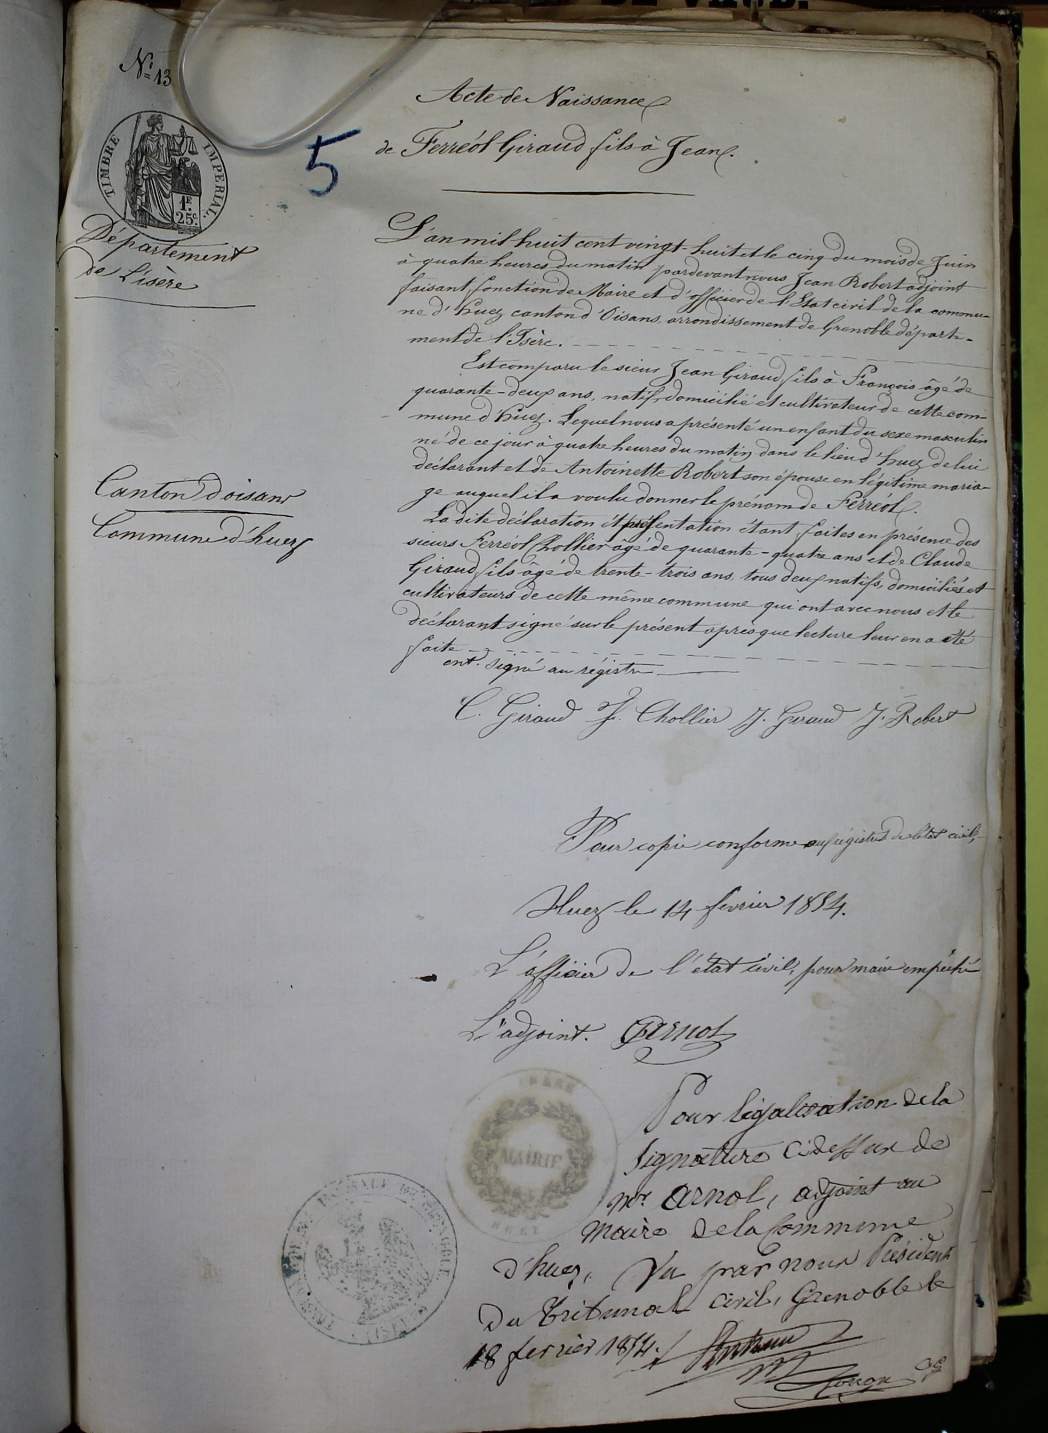 N° 13
TIMBRE IMPERIAL
1F.
25c.
5
Département
de L'isère
Canton d'oisans
Commune d'huez
Acte de Naissance
de Ferréol Giraud fils à Jean.
L'an mil huit cent vingt-huit et le cinq du mois de Juin
à quatre heures du matin pardevant nous Jean Robert adjoint
faisant fonction de Maire et d'officier de l'Etat civil de la commu-
ne d'huez canton d'Oisans, arrondissement de Grenoble départe-
ment de l'Isère.
Est comparu le sieur Jean Giraud fils à François âgé de
quarante-deux ans, natif, domicilié et cultivateur de cette com-
mune d'huez. Lequel nous a présenté un enfant du sexe masculin
né de ce jour à quatre heures du matin dans le lieu d'huez de lui
déclarant et de Antoinette Robert son épouse en légitime maria-
ge auquel il a voulu donner le prénom de Ferréol.
La dite déclaration et présentation étant faites en présence des
sieurs Ferréol Chollier âgé de quarante-quatre ans et de Claude
Giraud fils âgé de trente-trois ans, tous deux natifs, domiciliés et
cultivateurs de cette même commune qui ont avec nous et le
déclarant signé sur le présent après que lecture leur en a été
faite
ont signé au régistre
C. Giraud F. Chollier J. Giraud J. Robert
Pour copie conforme au régistre de l'état civil,
Huez le 14 fevrier 1854.
L'officier de l'état civil, pour maire empêché
L'adjoint. Arnol
MAIRIE
Pour légalisation de la
signature ci dessus de
Mr. Arnol, adjoint au
maire de la Commune
d'huez, Vu par nous Président
Du Tribunal civil, Grenoble le
18 fevrier 1854.